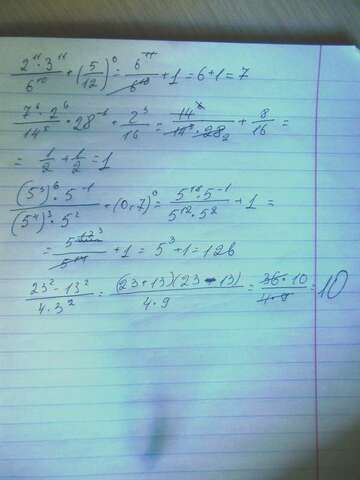 2¹¹·3¹¹/6¹⁰ + (5/12)⁰ = 6¹¹/6¹⁰ + 1 = 6+1 = 7
7⁶·2⁶/14⁵ · 28⁻⁶ + 2³/16 = 14⁶/14⁵·28₂ + 8/16 =
= 1/2 + 1/2 = 1
(5³)⁶·5⁻¹/(5⁴)³·5² + (0,7)⁰ = 5¹⁸·5⁻¹/5¹²·5² + 1 =
= 5¹⁷ ³/5¹⁴ + 1 = 5³+1 = 126
23²-13²/4·3² = (23+13)(23-13)/4·9 = 36·10/4·9 = 10